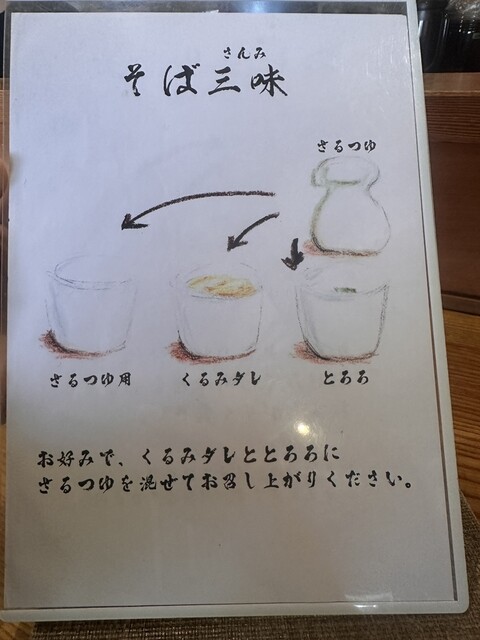 さんみ
そば三味
ざるつゆ
ざるつゆ用
くるみダレ
とろろ
お好みで、くるみダレととろろに
ざるつゆを混ぜてお召し上がりください。